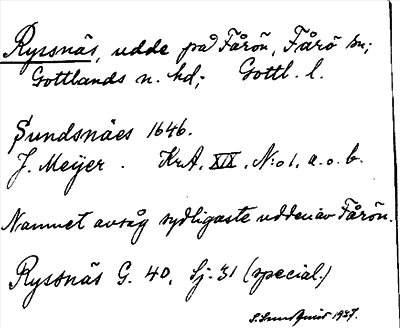 Ryssnäs, udde på Fårön, Fårö sn;
Gottlands n. hd; Gottl. l.
Sundsnäes 1646.
J. Meijer. KrA, XIX, N:o 1, a. o. b.
Namnet avsåg sydligaste udden av Fårön.
Ryssnäs G. 40, Sj. 31 (special.)
S. Lundquist 1937.